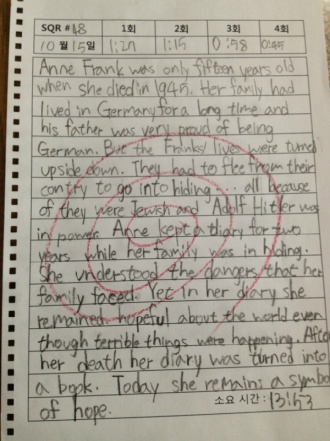 SQR #18 1회 2회 3회 4회
10월 15일 1:27 1:15 0:58 0:45
Anne Frank was only fifteen years old
when she died in 1945. Her family had
lived in Germany for a long time and
his father was very proud of being
German. But the Franks' lives were turned
upside down. They had to flee from their
contry to go into hiding... all because
of they were Jewish and Adolf Hitler was
in power. Anne kept a diary for two
years while her family was in hiding.
She understood the dangers that her
family faced. Yet in her diary she
remained hopeful about the world even
though terrible things were happening. After
her death her diary was turned into
a book. Today she remains a symbol
of hope. 소요 시간: 13:53